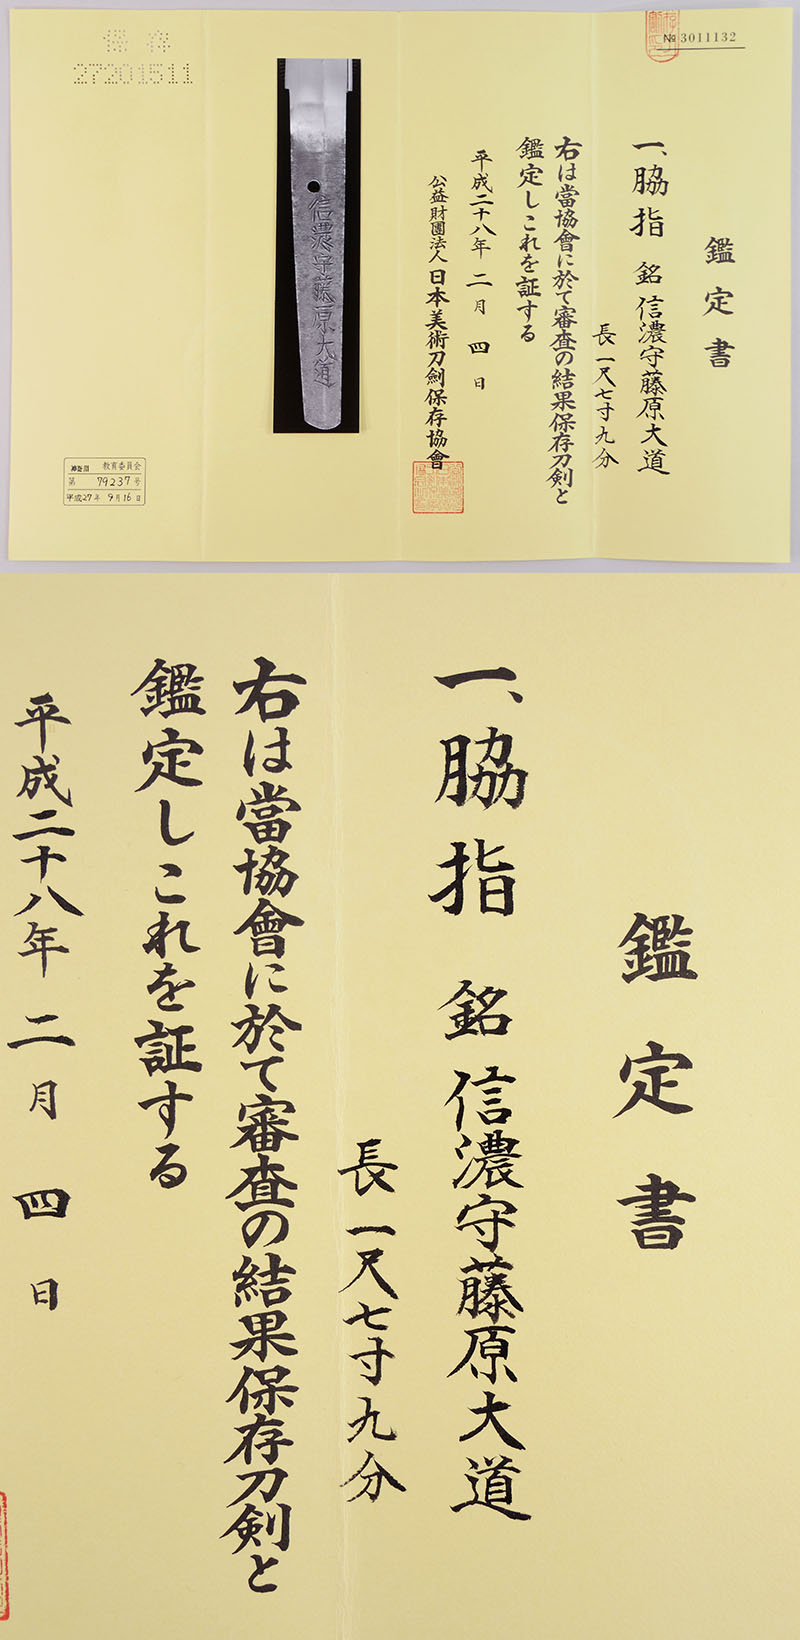 № 3011132
鑑定書
一、脇指 銘 信濃守藤原大道
長 一尺七寸九分
右は當協會に於て審査の結果保存刀剣と
鑑定しこれを証する
平成二十八年 二月 四日
公益財團法人 日本美術刀劍保存協會
信濃守藤原大道
保存
27201511
神奈川 教育委員会
第 79237 号
平成27年 9月16日
鑑定書
一、脇指 銘 信濃守藤原大道
長 一尺七寸九分
右は當協會に於て審査の結果保存刀剣と
鑑定しこれを証する
平成二十八年 二月 四日